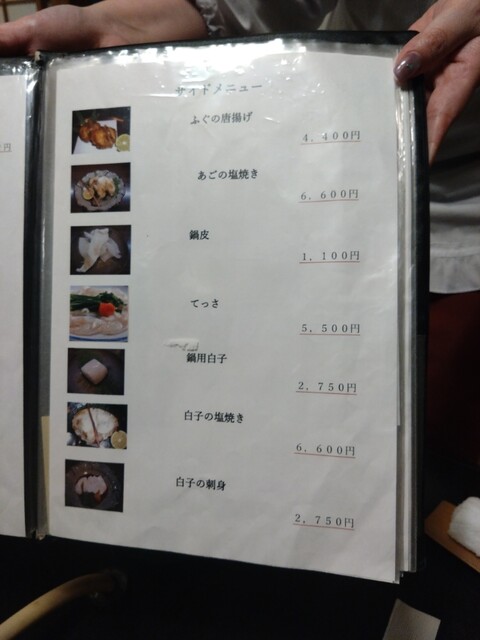 サイドメニュー
ふぐの唐揚げ
4,400円
あごの塩焼き
6,600円
鍋皮
1,100円
てっさ
5,500円
鍋用白子
2,750円
白子の塩焼き
6,600円
白子の刺身
2,750円